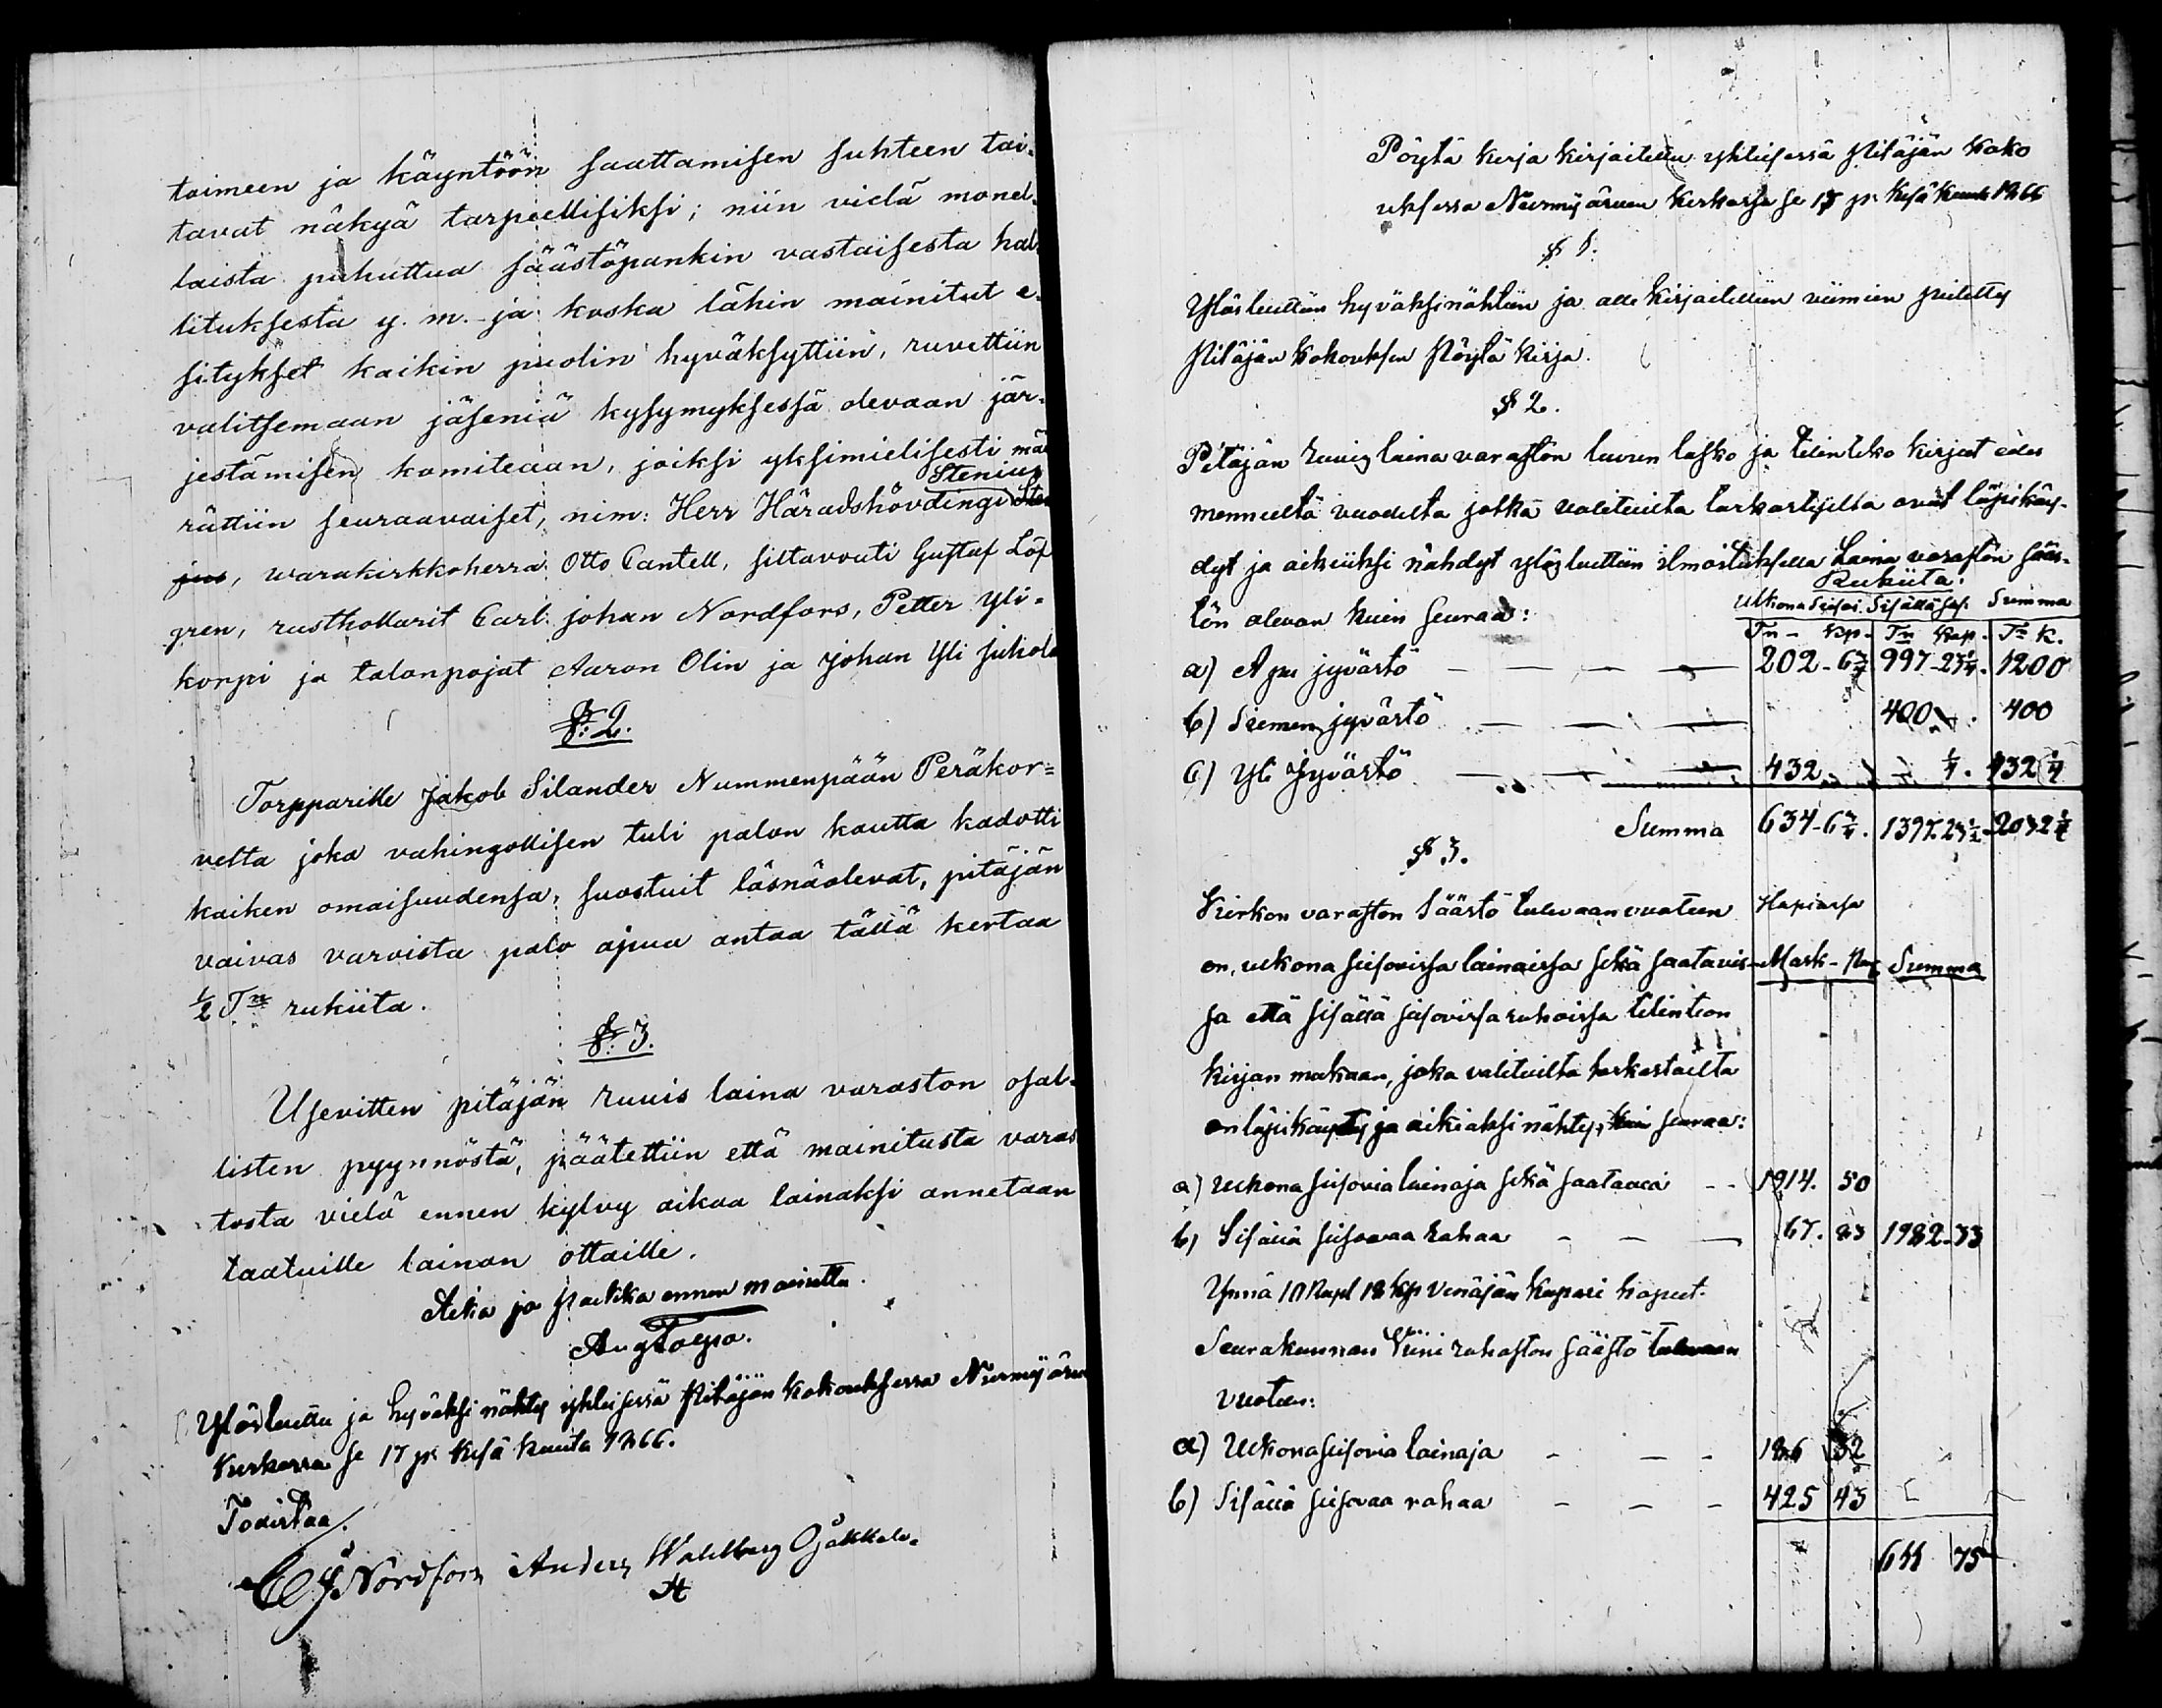 toimeen ja käyntöön saattamisen suhteen tai-
tavat näkyä tarpeellisiksi; niin vielä monel-
laista puhuttua säästöpankin vastaisesta hal-
lituksesta y. m. ja koska lähin mainitut e-
sitykset kaikin puolin hyväksyttiin, ruvettiin
valitsemaan jäseniä kysymyksessä olevaan jär-
jestämisen komiteaan, joiksi yksimielisesti mää
Stenius
rättiin seuraavaiset, nim: Herr Häradshövdingi Sten
jus, warakirkkoherra Otto Cantell, siltavouti Gustaf Löf
gren, rusthollarit Carl johan Nordfors, Petter Yli-
korpi ja talonpojat Aaron Olin ja Johan Yli juhola
§: 2.
Torpparille Jakob Silander Nummenpään Peräkor-
velta joka vahingollisen tuli palon kautta kadotti
kaiken omaisuudensa, suostuit läsnäolevat, pitäjän
vaivas varoista palo apua antaa tällä kertaa
½ Tn rukiita.
§: 3.
Usevitten pitäjän ruuis laina varaston osal-
listen pyynnöstä, päätettiin että mainitusta varas
tosta vielä ennen kylvy aikaa lainaksi annetaan
taatuille lainan ottaille.
Aika ja paikka ennen mainittu.
Aug Talpo.
Ylösluettu ja hyväksi nähty yhteisessä Pitäjän kokouksessa Nurmijärven
Kirkossa se 17 p: Kesä kuuta 1866.
Todistaa.
C J Nordfors Anders Wahlberg Ojakkala.
Pöytä kirja kirjoitettu yhteisessä Pitäjän koko
uksessa Nurmijärven kirkossa se 17 p: Kesä kuuta 1866
§ 1.
Ylösluettiin hyväksi nähtiin ja alle kirjoitettiin viimein pidetty
Pitäjän kokouksen Pöytä kirja.
§ 2.
Pitäjän ruuis laina varaston luvun lasko ja tilinteko kirjat edes
menneeltä vuodelta jotka valituilta tarkastijilta ovat läpikäy-
dyt ja oikiiksi nähdyt ylös luettiin ilmoituksella Laina varaston sääs-
Rukiita.
tön olevan kuin seuraa:
Ulkona seisoi. Sisällä seis. Summa
Tn - kp. Tn kap. Tn k.
a) Apu jyvästö 202 - 6¾ 997 - 23¼. 1200
b) Siemen jyvästö 400 . 400
c) Yli Jyvästö 432 ¼. 432 ¼
Summa 634 - 6¾. 1397. 23½ 2032 ¼
§ 3.
Kirkon varaston Säästö tulevaan vuoteen Hopiassa
on, ulkona seisovissa lainaissa sekä saatavis- Mark - Summa
sa että sisällä seisovissa rahoissa tilinteon
kirjan mukaan, joka valituilta tarkastailta
on läpikäyty ja oikiaksi nähty, kuin seuraa:
a) Ulkona seisovia lainaja sekä saatavia 1914. 50
b) Sisällä seisovaa rahaa 67. 83 1982 - 33
Ynnä 10 Rupl 18 kp venäjän kupari kopeet.
Seurakunnan Viini rahaston säästö tulevaan
vuoteen:
a) Ulkona seisovia lainaja 186 32
b) Sisällä seisovaa rahaa 425 43
611 75